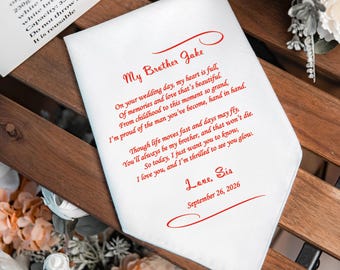 My Brother Jake
On your wedding day, my heart is full,
Of memories and love that's beautiful.
From childhood to this moment so grand,
I'm proud of the man you've become, hand in hand.
Though life moves fast and days may fly,
You'll always be my brother, and that won't die.
So today, I just want you to know,
I love you, and I'm thrilled to see you glow.
Love, Sis
September 26, 2026